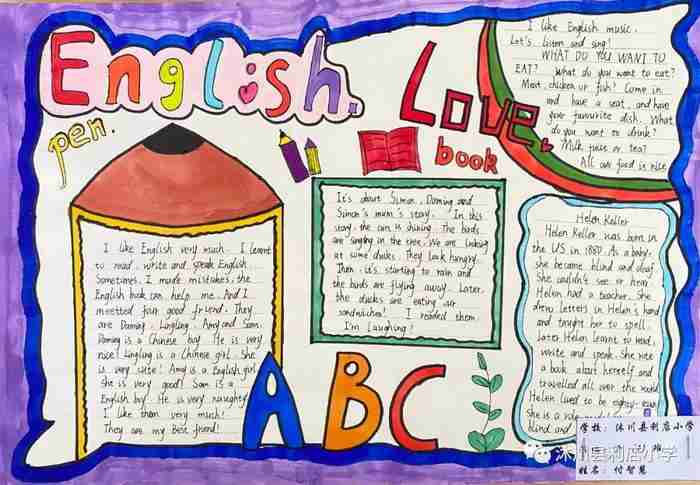 English.
Love
pen.
book
I like English very much. I learnt
to read, write and speak English
Sometimes, I made mistakes, the
English book can help me. And I
meetted four good friend. They
are Daming, Lingling, Amy and Sam.
Daming is a Chinese boy. He is very
nice! Lingling is a Chinese girl. She
is very cute! Amy is a English girl
she is very good! Sam is a
English boy. He is very naughty
I like them very much!
They are my Best friend!
It's about Simon, Daming and
Simon's mum's story. In this
story, the sun is shining. The birds
are singing in the tree. We are looking
at some ducks. They look hungry.
Then, it's starting to rain and
the birds are flying away. Later,
the ducks are eating our
sandwiches! I readed them.
I'm laughing!
I like English music.
Let's listen and sing!
WHAT DO YOU WANT TO
EAT? What do you want to eat?
Meat, chicken or fish? Come in
and have a seat, and have
your favourite dish. What
do you want to drink?
Milk, juice or tea?
All our food is nice
Helen Keller
Helen Keller was born in
the US in 1880. As a baby,
she became blind and deaf.
She couldn't see or hear
Helen had a teacher. She
drew letters in Helen's hand
and taught her to spell.
Later Helen learnt to read,
write and speak. She wrote
a book about herself and
travelled all over the world
Helen lived to be eighty-
She is a role model
blind and
ABC
学校: 沐川县利店小学
姓名: 付智慧
沐川县利店小学